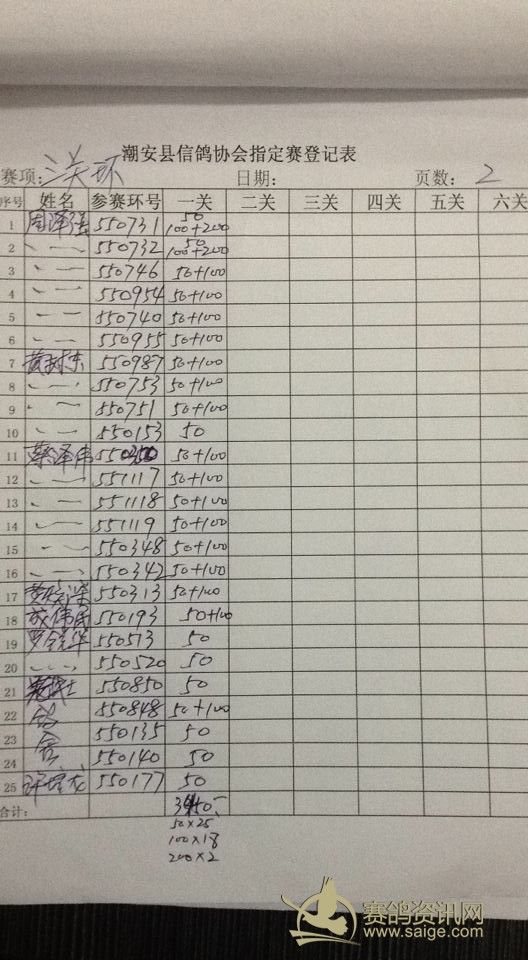 潮安县信鸽协会指定赛登记表
赛项: 关环 日期: 页数: 2
序号 姓名 参赛环号 一关 二关 三关 四关 五关 六关
1 周泽强 550731 50 100+200
2 550732 50 100+200
3 550746 50+100
4 550954 50+100
5 550740 50+100
6 550955 50+100
7 550987 50+100
8 550753 50+100
9 550751 50+100
10 550153 50
11 蔡泽伟 50+100
12 551117 50+100
13 551118 50+100
14 551119 50+100
15 550348 50+100
16 550342 50+100
17 550313 50+100
18 550193 50+100
19 550513 50
20 550520 50
21 550850 50
22 鸽 550848 50+100
23 舍 550135 50
24 550140 50
25 550177 50
合计: 3450
50×25
100×18
200×2
赛鸽资讯网
www.saige.com